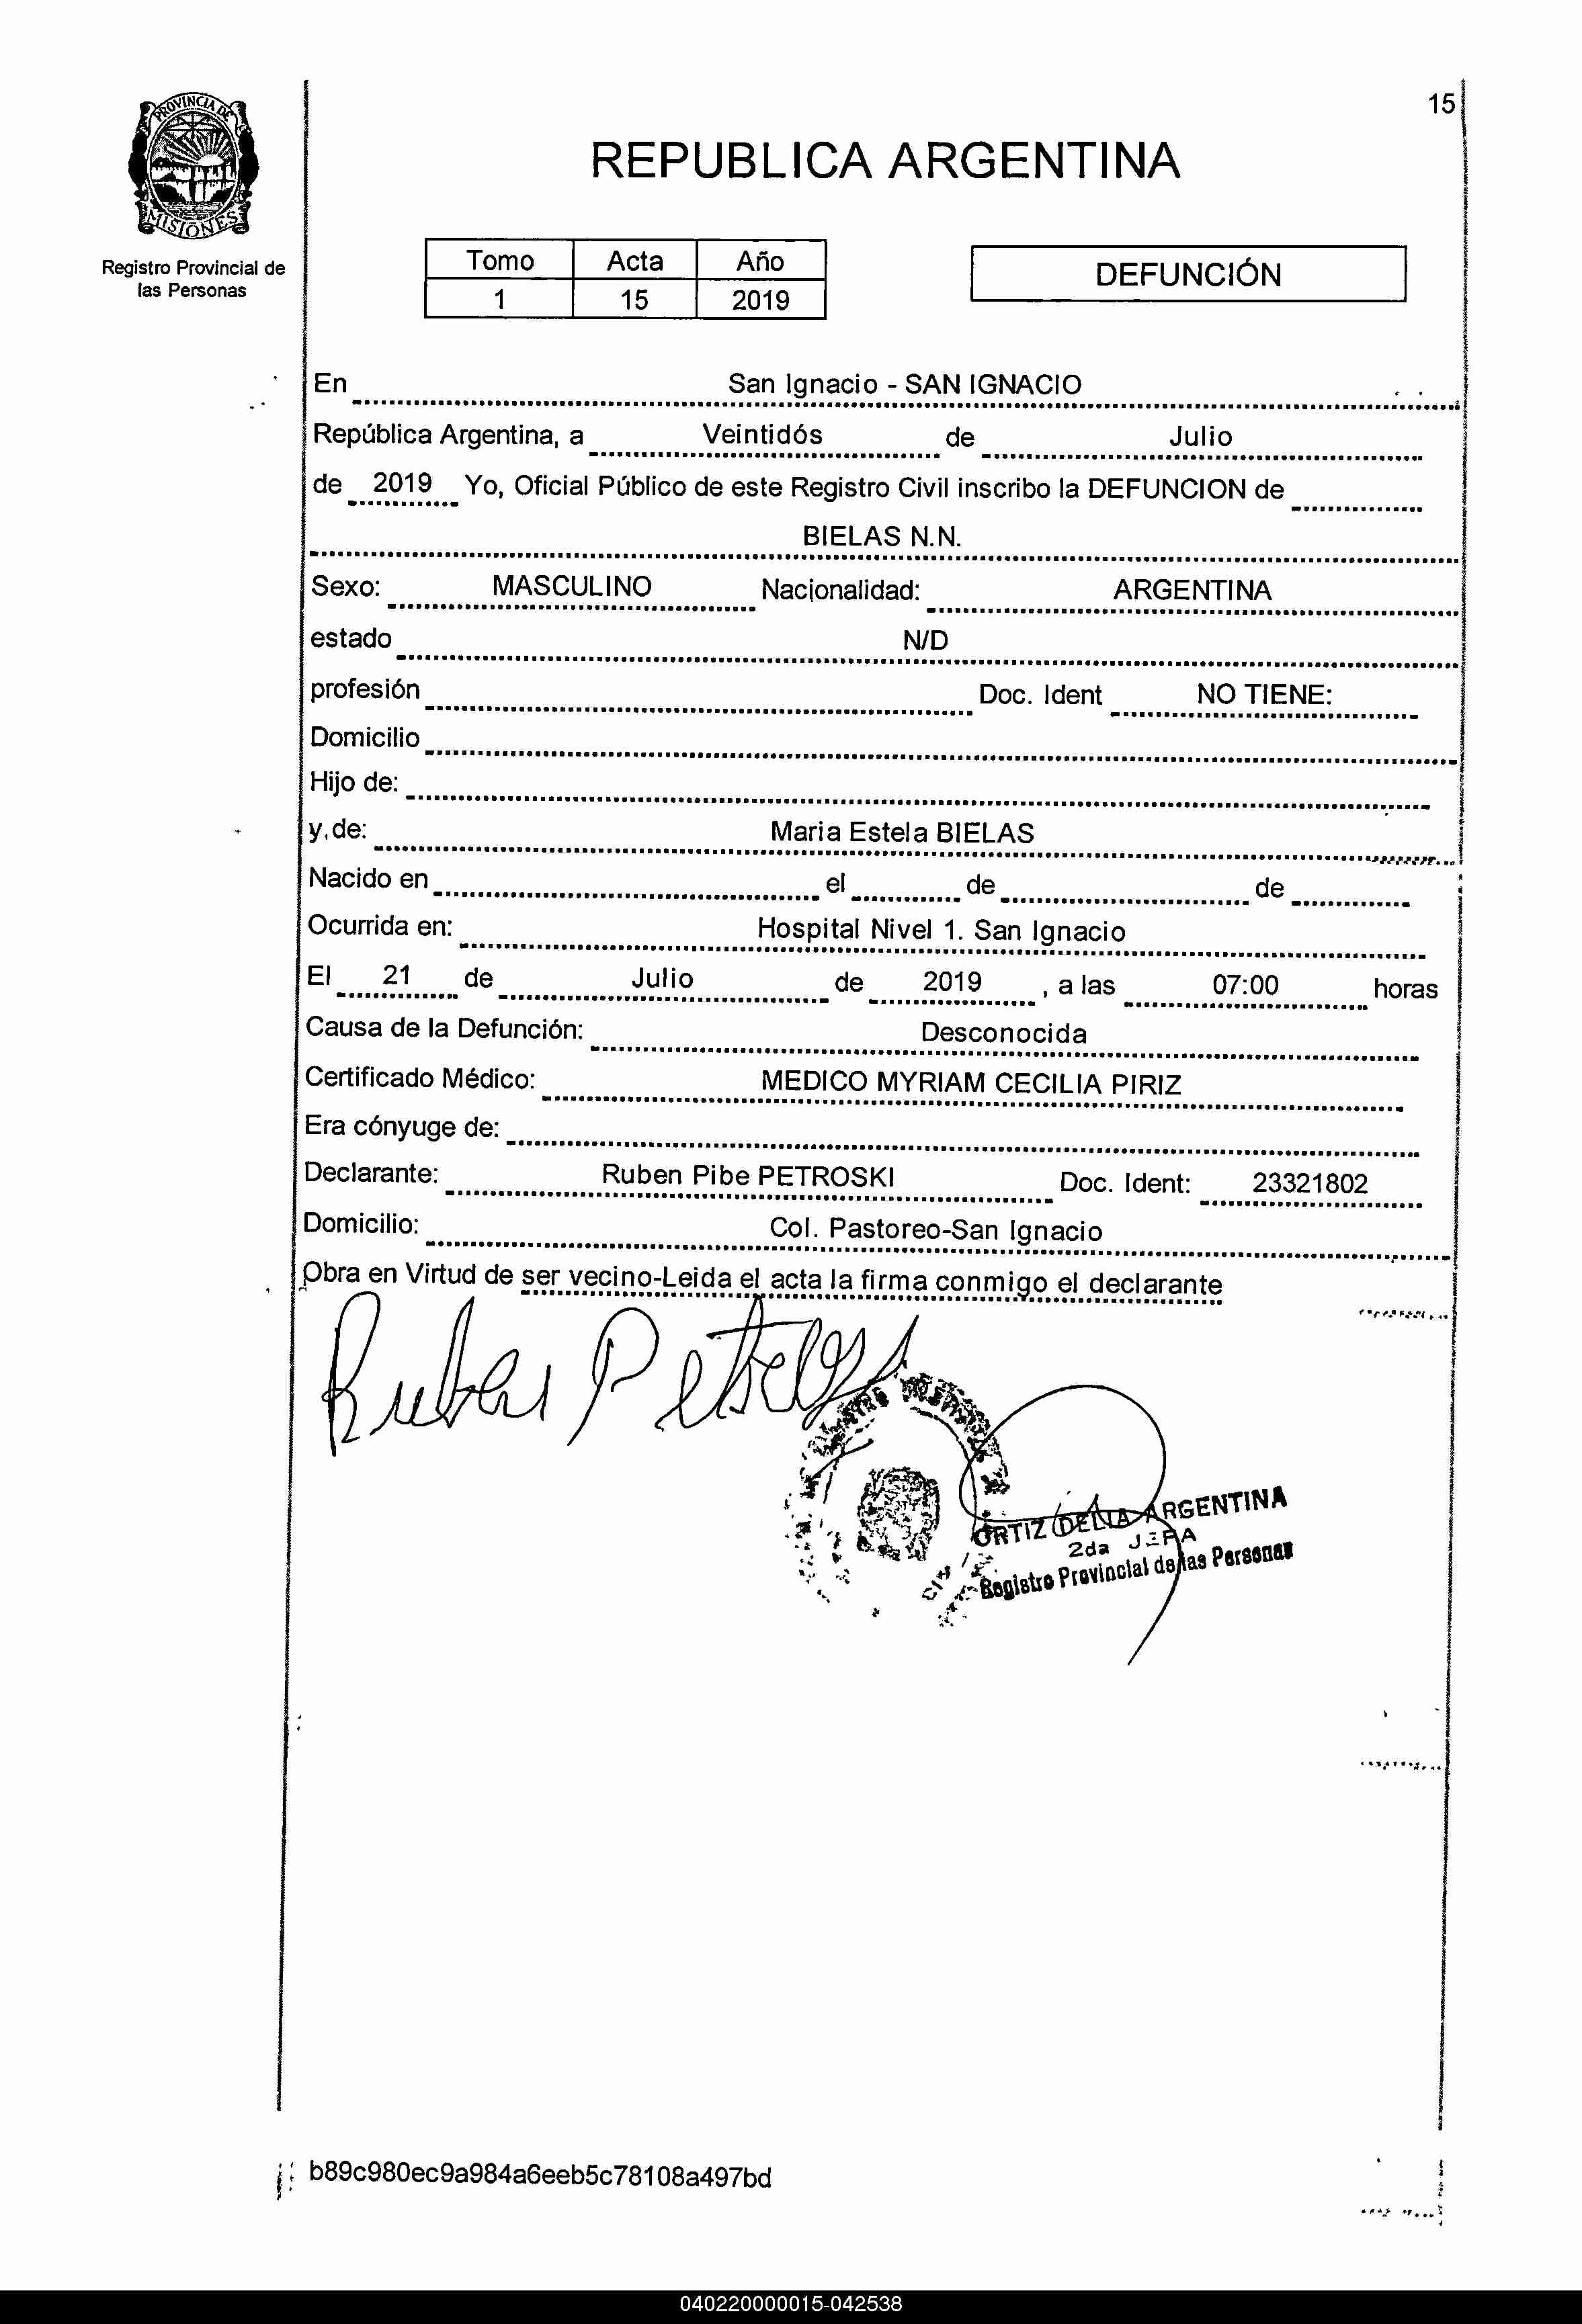 15
PROVINCIA DE
MISIONES
Registro Provincial de
las Personas
REPUBLICA ARGENTINA
Tomo Acta Año
1 15 2019
DEFUNCIÓN
En San Ignacio - SAN IGNACIO
República Argentina, a Veintidós de Julio
de 2019 Yo, Oficial Público de este Registro Civil inscribo la DEFUNCION de
BIELAS N.N.
Sexo: MASCULINO Nacionalidad: ARGENTINA
estado N/D
profesión Doc. Ident NO TIENE:
Domicilio
Hijo de:
y de: Maria Estela BIELAS
Nacido en el de de
Ocurrida en: Hospital Nivel 1. San Ignacio
El 21 de Julio de 2019 , a las 07:00 horas
Causa de la Defunción: Desconocida
Certificado Médico: MEDICO MYRIAM CECILIA PIRIZ
Era cónyuge de:
Declarante: Ruben Pibe PETROSKI Doc. Ident: 23321802
Domicilio: Col. Pastoreo-San Ignacio
Obra en Virtud de ser vecino-Leida el acta la firma conmigo el declarante
Ruben P
ORTIZ DELIA ARGENTINA
2da JEFA
Registro Provincial de las Personas
b89c980ec9a984a6eeb5c78108a497bd
040220000015-042538